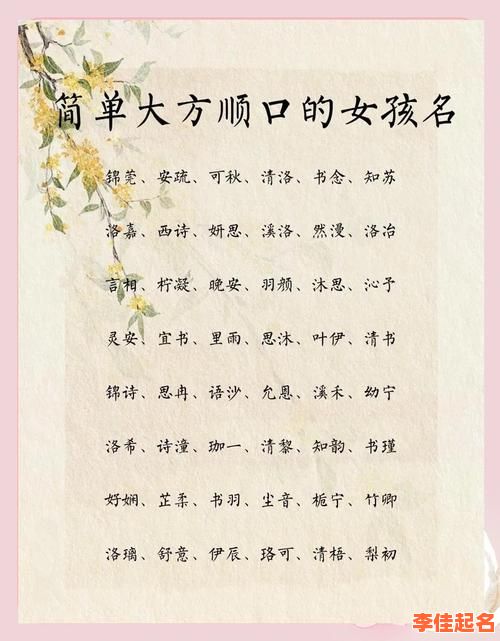 简单大方顺口的女孩名
锦莞、安疏、可秋、清洛、书念、知苏
洛嘉、西诗、妍思、溪洛、然漫、洛冶
言相、柠凝、晚安、羽颜、沐思、沁予
灵安、宜书、里雨、思沐、叶伊、清书
锦诗、思冉、语沙、允恩、溪禾、幼宁
洛希、诗潼、珈一、清黎、知韵、书瑾
好娴、芷柔、书羽、尘音、栀宁、竹卿
洛璃、舒意、伊辰、珞可、清梧、梨初
李佳起名